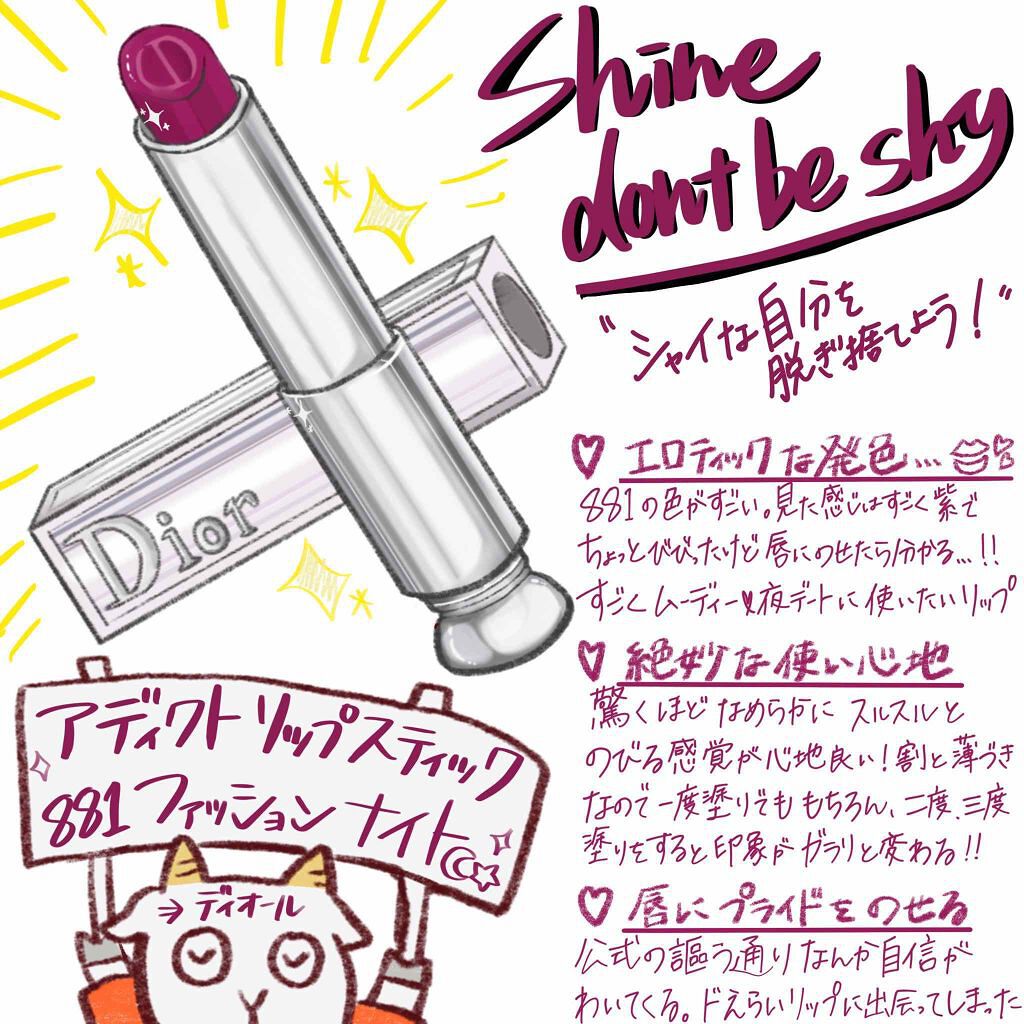 Shine
dont be shy
"シャイな自分を
脱ぎ捨てよう！"
♡ エロティックな発色...
881の色がすごい。見た感じはすごく紫で
ちょっとびびったけど唇にのせたら分かる...!!
すごくムーディー♥夜デートに使いたいリップ
♡ 絶妙な使い心地
驚くほどなめらかにスルスルと
のびる感覚が心地良い！割と薄づき
なので一度塗りでももちろん、二度、三度
塗りをすると印象がガラリと変わる!!
♡ 唇にプライドをのせる
公式の謳う通りなんか自信が
わいてくる。ドえらいリップに出会ってしまった
Dior
アディクトリップスティック
881ファッションナイト
⇒ ディオール